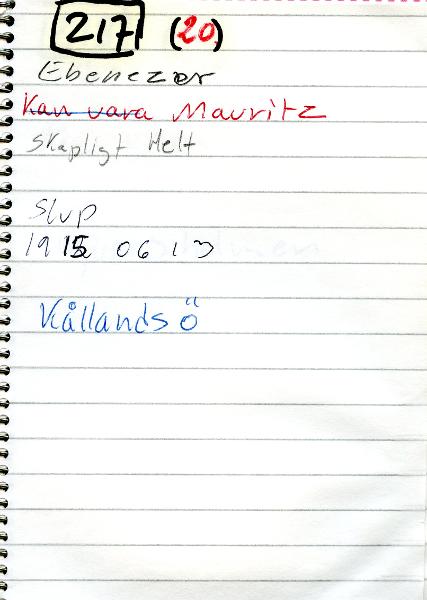 217 (20)
Ebenezer
Kan vara Mauritz
Skapligt Helt
Slup
1915 06 13
Kållandsö